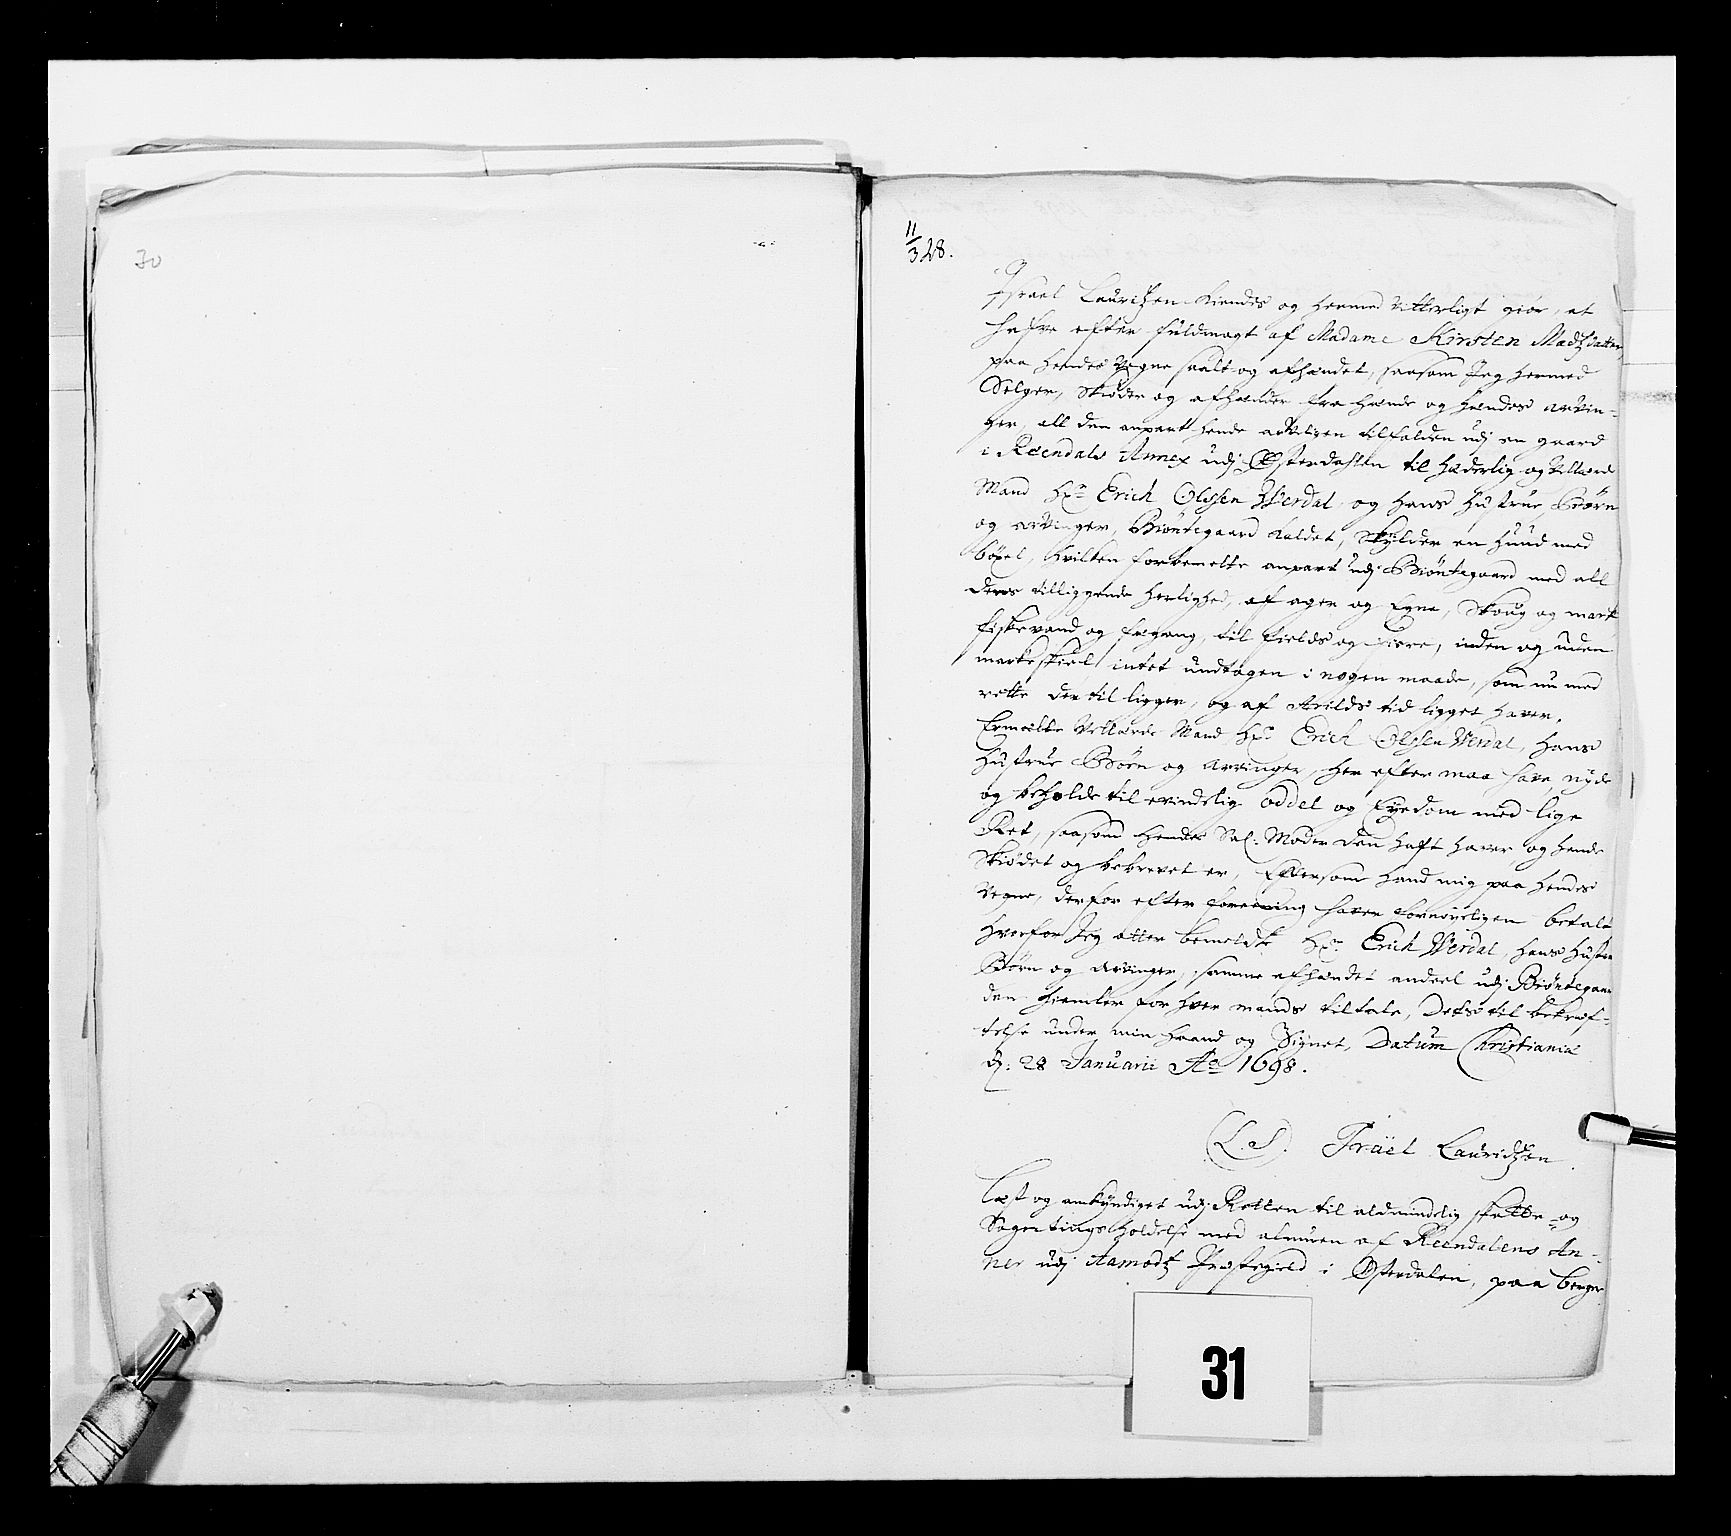 30
11/3 28.
Israel Lauritzen Kiendes og hermed Vitterligt giør, at
hafve efter fuldmagt af Madame Kirsten Madtzdatter
paa hendes Vegne saalt og afhændet, saasom Jeg hermed
Selger, Skiøder og afhænder fra hende og hendes arvin-
ger, all den anpart hende arveligen tilfalden udj en gaard
i Reendals Annex udj Østerdahlen til hæderlig og Vellærd
Mand Hr. Erich Olssen Werdal og hans hustrue, Børn
og arvinger, Biøntegaard kaldet, Skylder en huud med
böxel, hvilken forbemelte anpart udj Biøntegaard med all
deres tilliggende herlighed, af ager og Egne, Skoug og mark
fiskevand og fægang, til fields og fiære, inden og uden
markeskiel, intet undtagen i nogen maade, som nu med
rette der til ligger, og af Arilds tid ligget haver.
Ermelte Vellærde Mand Hr. Erich Olssen Werdal, hans
hustrue Børn og arvinger, her efter maa have, nyde
og beholde til evindelig oddel og Eyedom med lige
Ret, saasom hendes Sal: Moder den haft haver og hende
Skiødet og bebrevet er, Eftersom hand mig paa hendes
Vegne, derfor efter foreening haver fornøyeligen betalt
hvorfor Jeg atter bemelte Hr. Erich Werdal, hans hustru
Børn og Arvinger, samme afhændet andeel udj Biøntegaar
den hiemler for hver mands tiltale, Dets til bekræf-
telse under min haand og Signet, Datum Christiania
d: 28 Januarii Ao 1698.
(L.S.) Israel Lauridtzen.
Læst og ankyndiget udj Retten til aldmindelig skatte- og
Sagetings holdelse med almuen af Reendalens An-
nex udj Aamodtz Præstegield i Østerdalen, paa berger
31